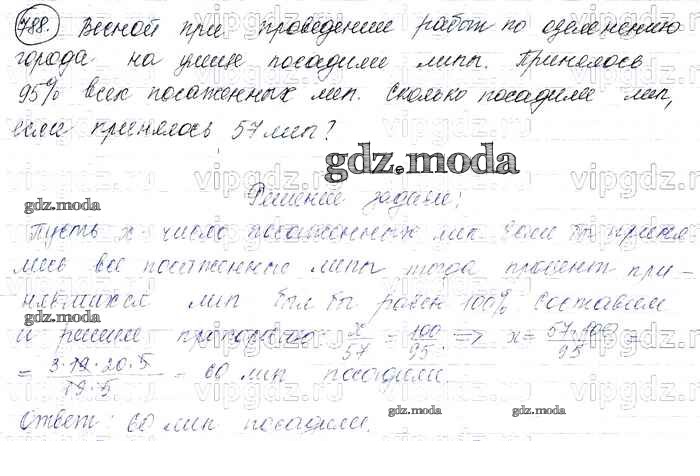 788. Весной при проведении работ по озеленению
города на улице посадили липы. Принялось
95% всех посаженных лип. Сколько посадили лип,
если принялось 57 лип?
gdz.moda
Решение задачи:
gdz.moda
Пусть x число посаженных лип. Если бы приня-
лись все посаженные липы тогда процент при-
нявшихся лип был бы равен 100% Составим
gdz.moda
и решим пропорцию: x/57 = 100/95 => x = 57·100/95 =
= 3·19·20·5/19·5 = 60 лип посадили.
gdz.moda gdz.moda
Ответ: 60 лип посадили.